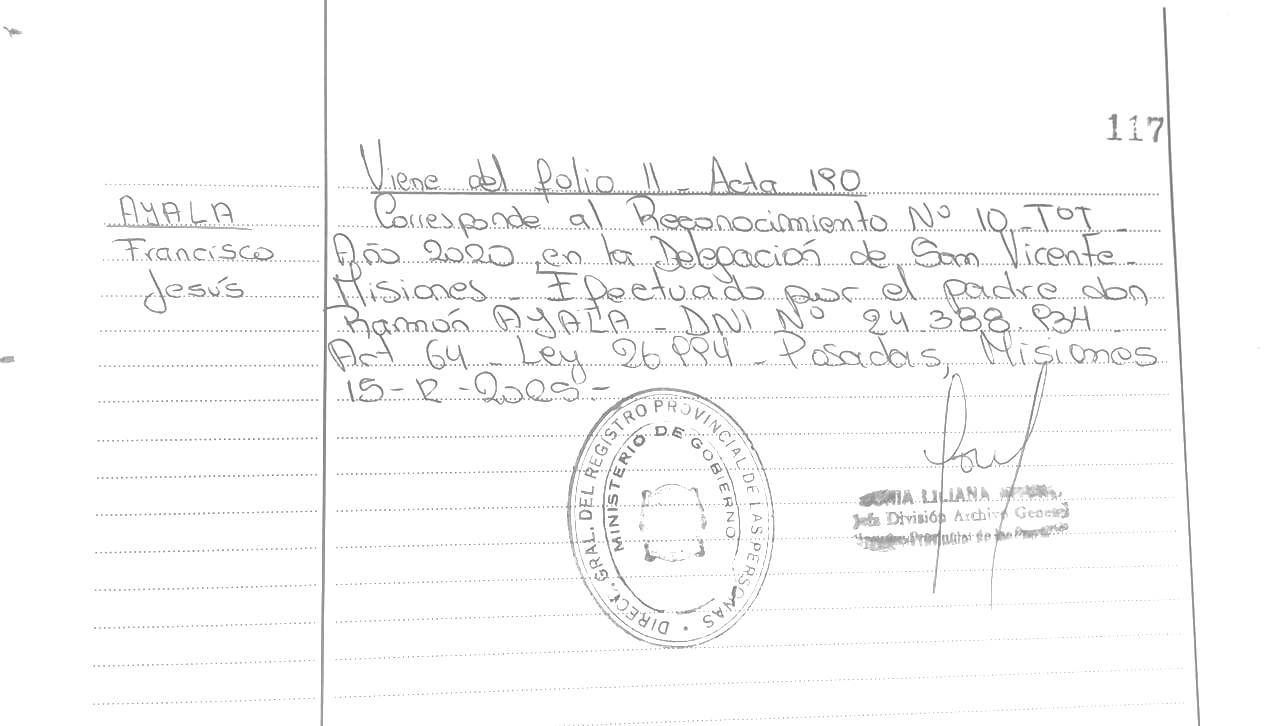 117
Viene del folio 11 - Acta 190
AYALA
Francisco
Jesús
Corresponde al Reconocimiento Nº 10 - TºI -
Año 2020 en la Delegación de San Vicente -
Misiones - Efectuado por el padre don
Ramón AYALA - DNI Nº 24.388.934 -
Art 64 - Ley 26994 - Posadas, Misiones
15-12-2025.-
DIREC. GRAL. DEL REGISTRO PROVINCIAL DE LAS PERSONAS
MINISTERIO DE GOBIERNO
LILIANA
Jefa División Archivo General
Provincial de las Personas